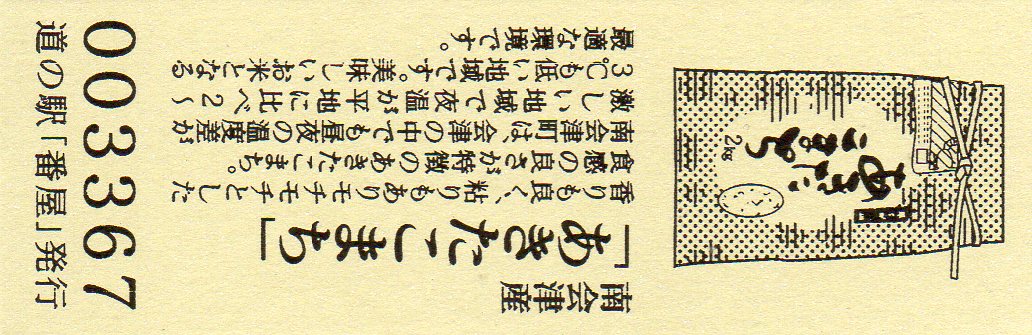 南会津産
「あきたこまち」
香りも良く、粘りもありモチモチとした
食感の良さが特徴のあきたこまち。
南会津町は、会津の中でも昼夜の温度差が
激しい地域で夜温が平地に比べ2〜
3℃も低い地域です。美味しいお米となる
最適な環境です。
あきたこまち
2kg
003367
道の駅「番屋」発行